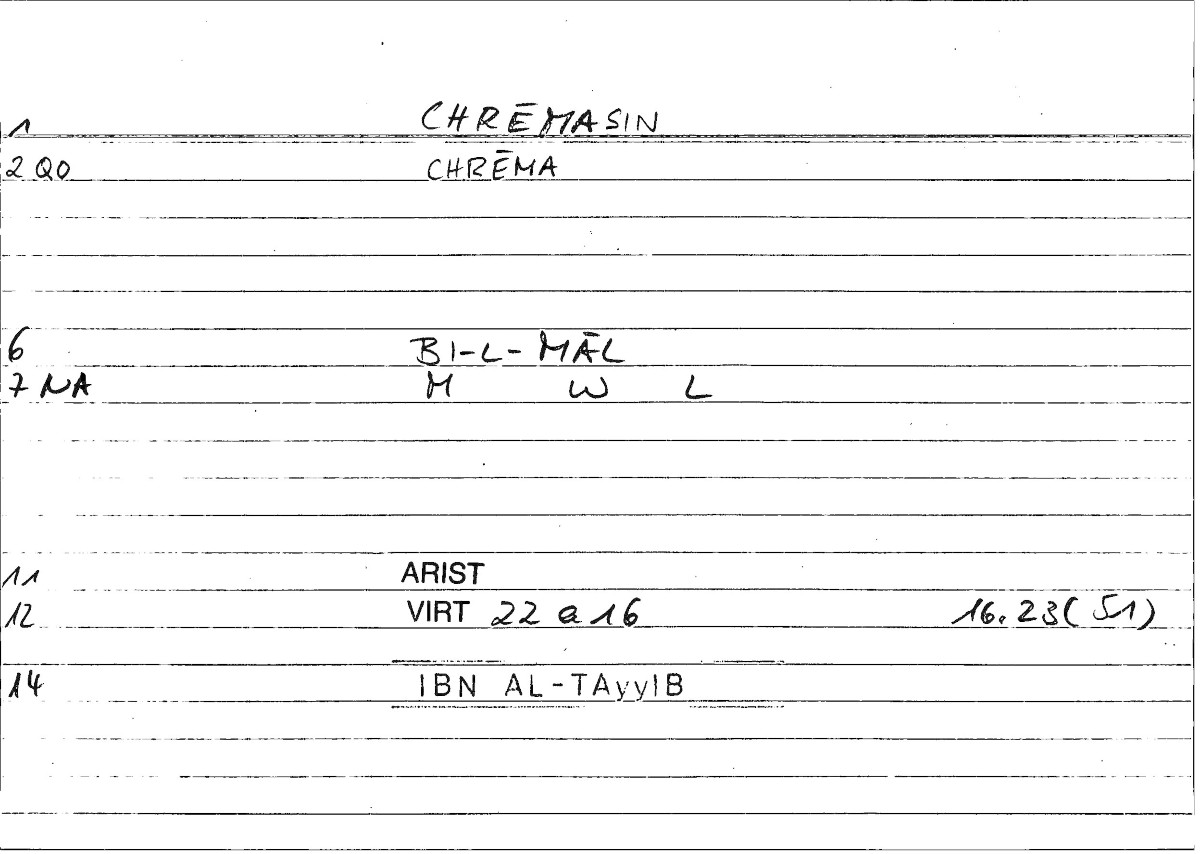 1 CHRĒMASIN
2 QO CHRĒMA
6 BI-L-MĀL
7 NA M W L
11 ARIST
12 VIRT 22 a 16 16.23(51)
14 IBN AL-TAyyIB